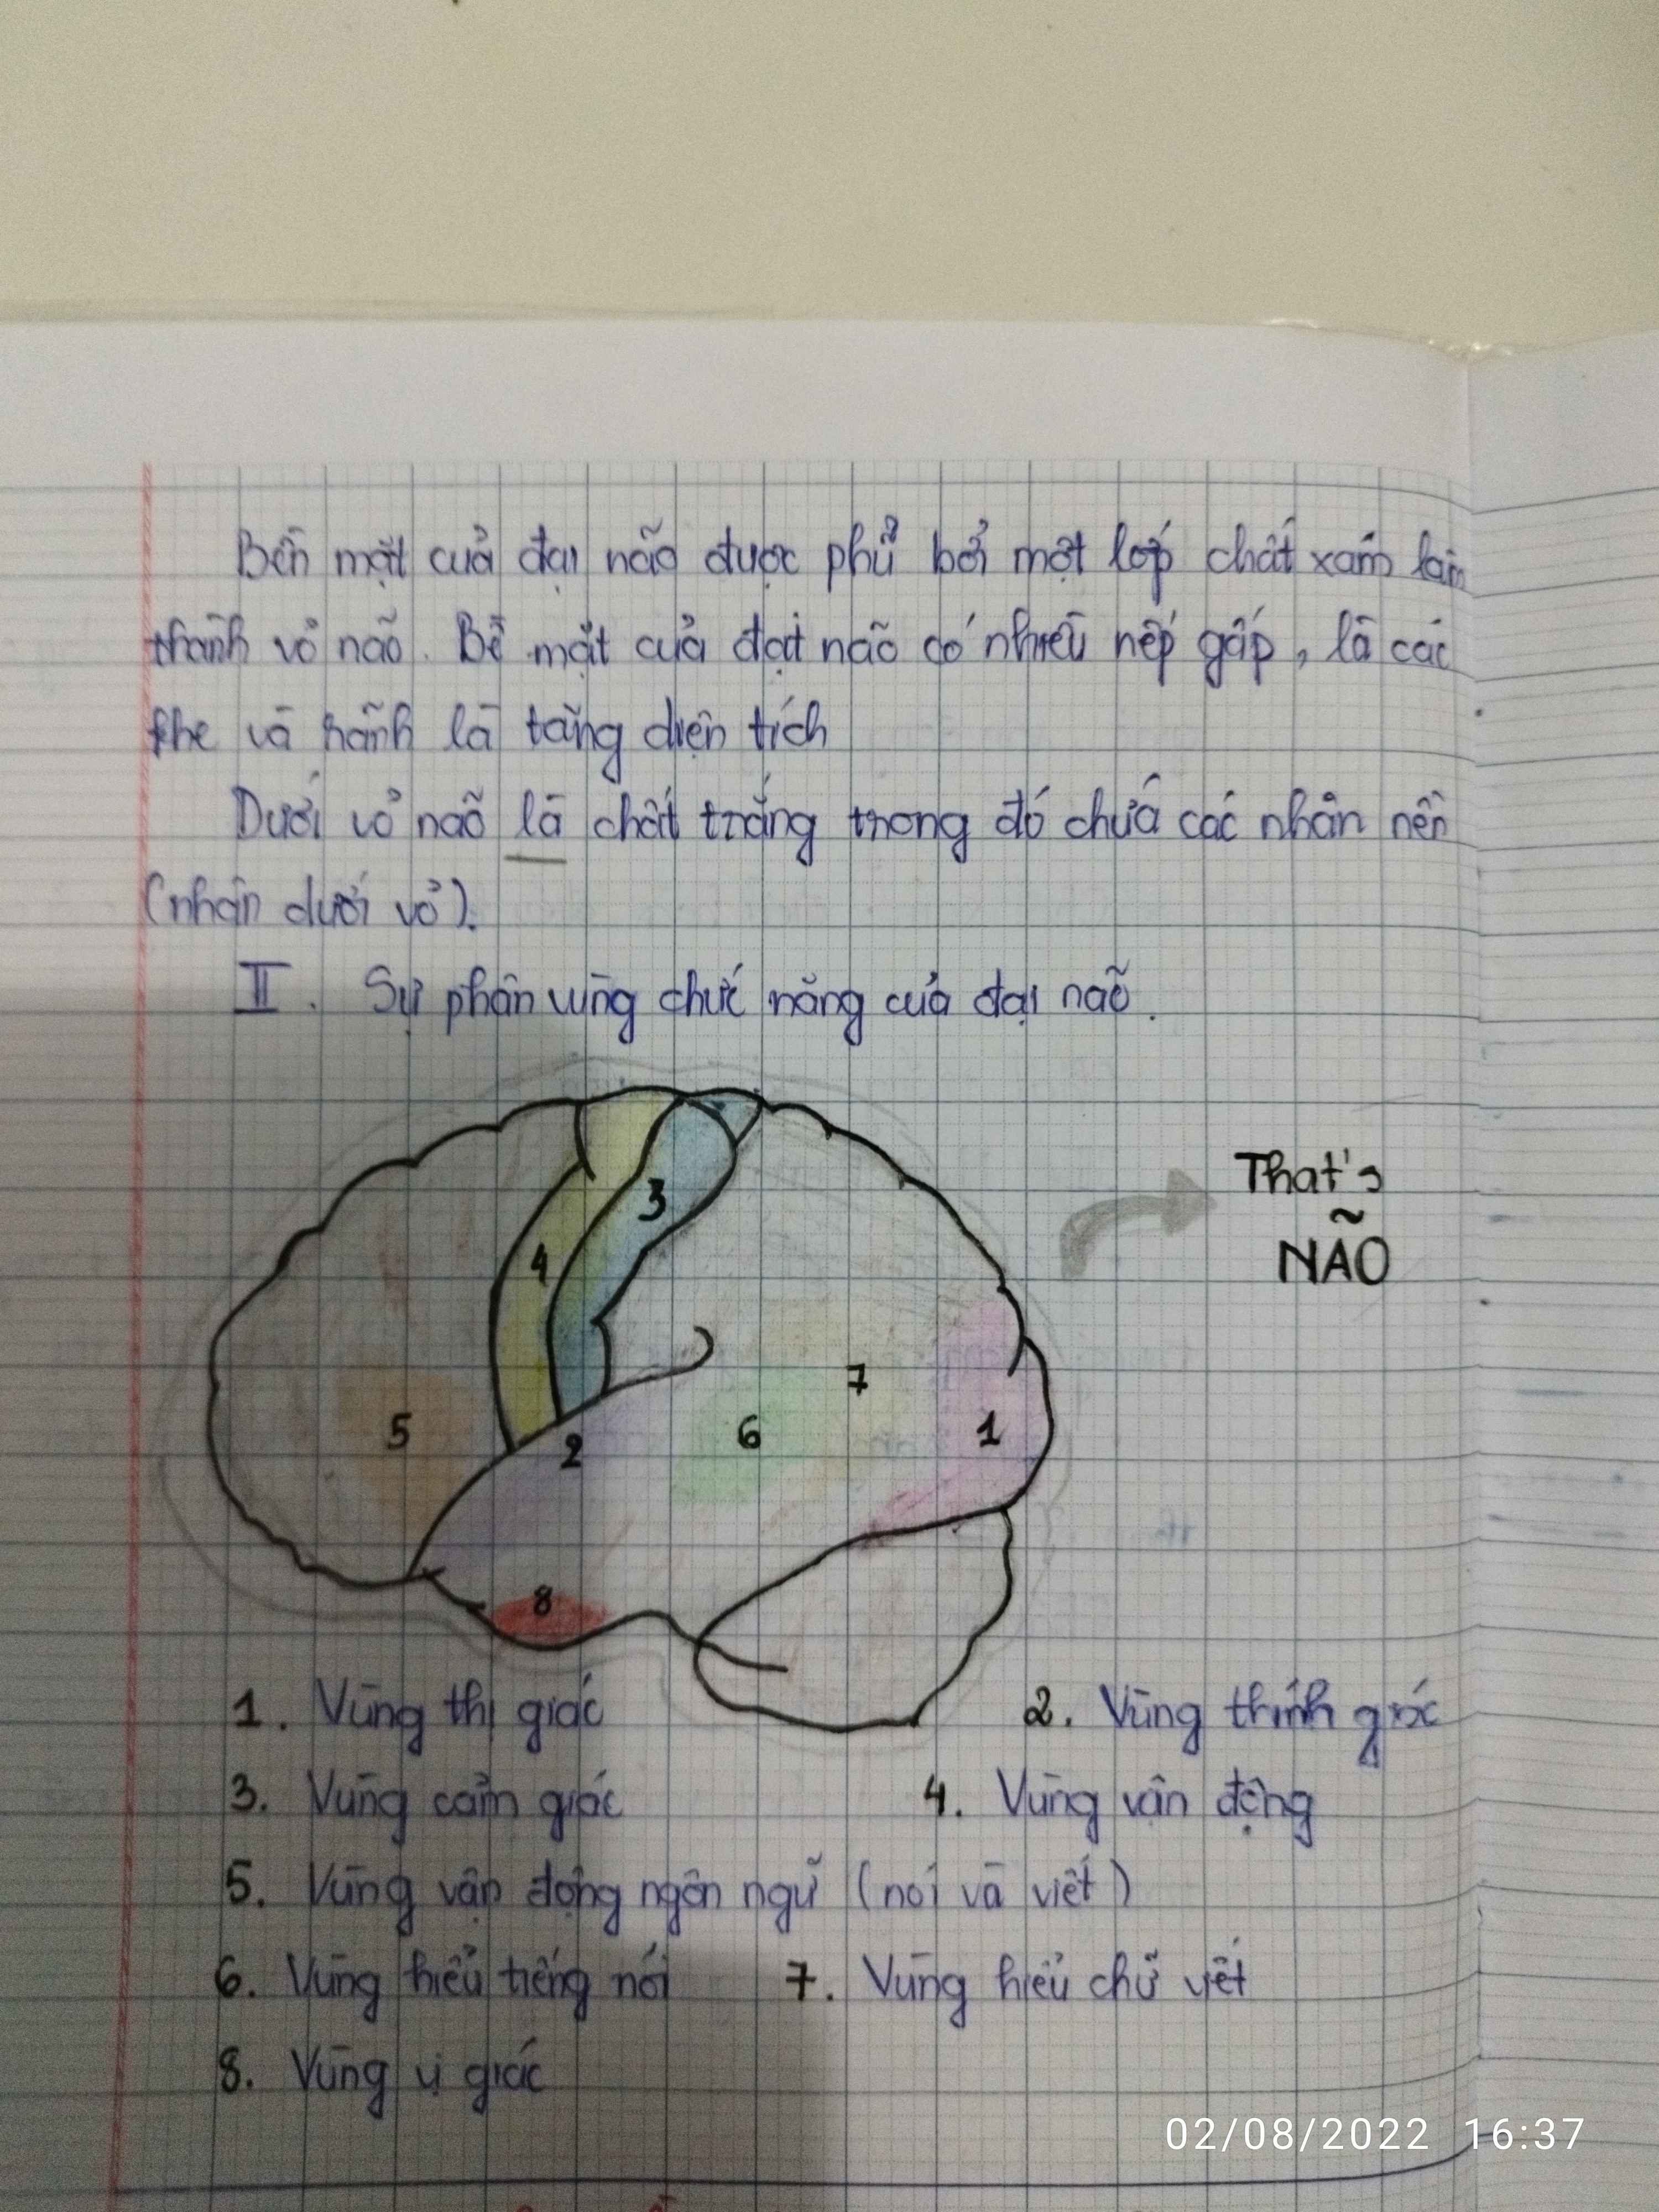 Bên mặt của đại não được phủ bởi một lớp chất xám làm
thành vỏ não. Bề mặt của đại não có nhiều nếp gấp, là các
khe và rãnh là tăng diện tích
Dưới vỏ não là chất trắng trong đó chứa các nhân nền
(nhân dưới vỏ).
II. Sự phân vùng chức năng của đại não.
That's
NÃO
4
3
5
2
6
7
1
8
1. Vùng thị giác
2. Vùng thính giác
3. Vùng cảm giác
4. Vùng vận động
5. Vùng vận động ngôn ngữ (nói và viết)
6. Vùng hiểu tiếng nói
7. Vùng hiểu chữ viết
8. Vùng vị giác
02/08/2022 16:37